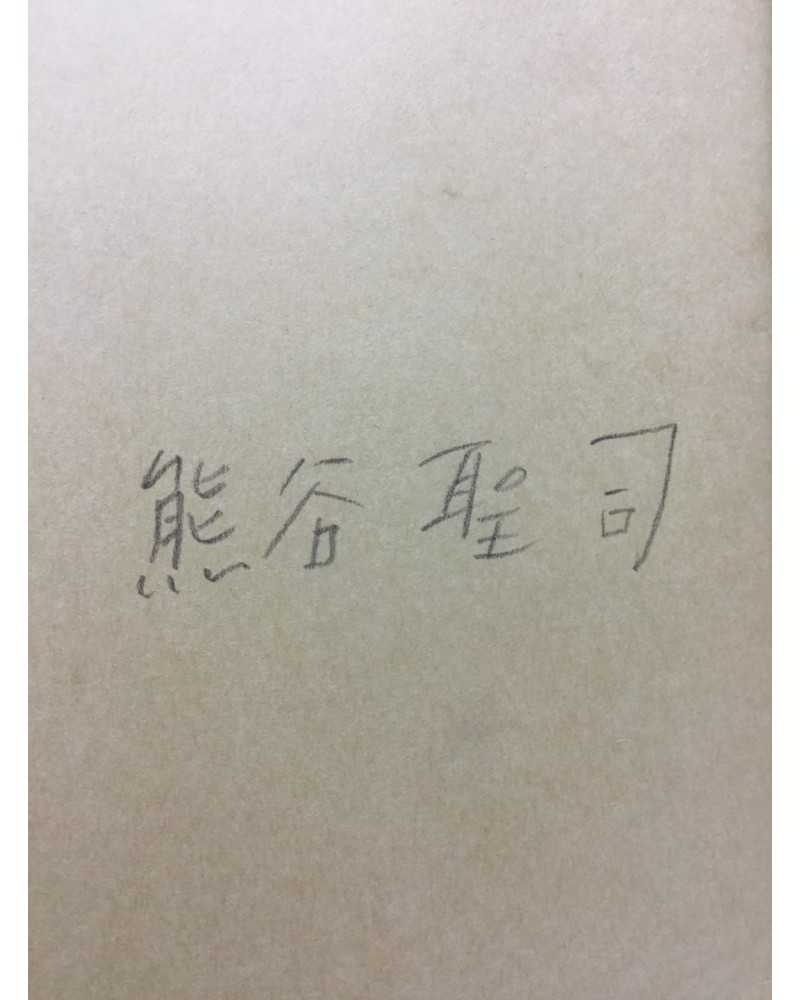 熊谷聖司